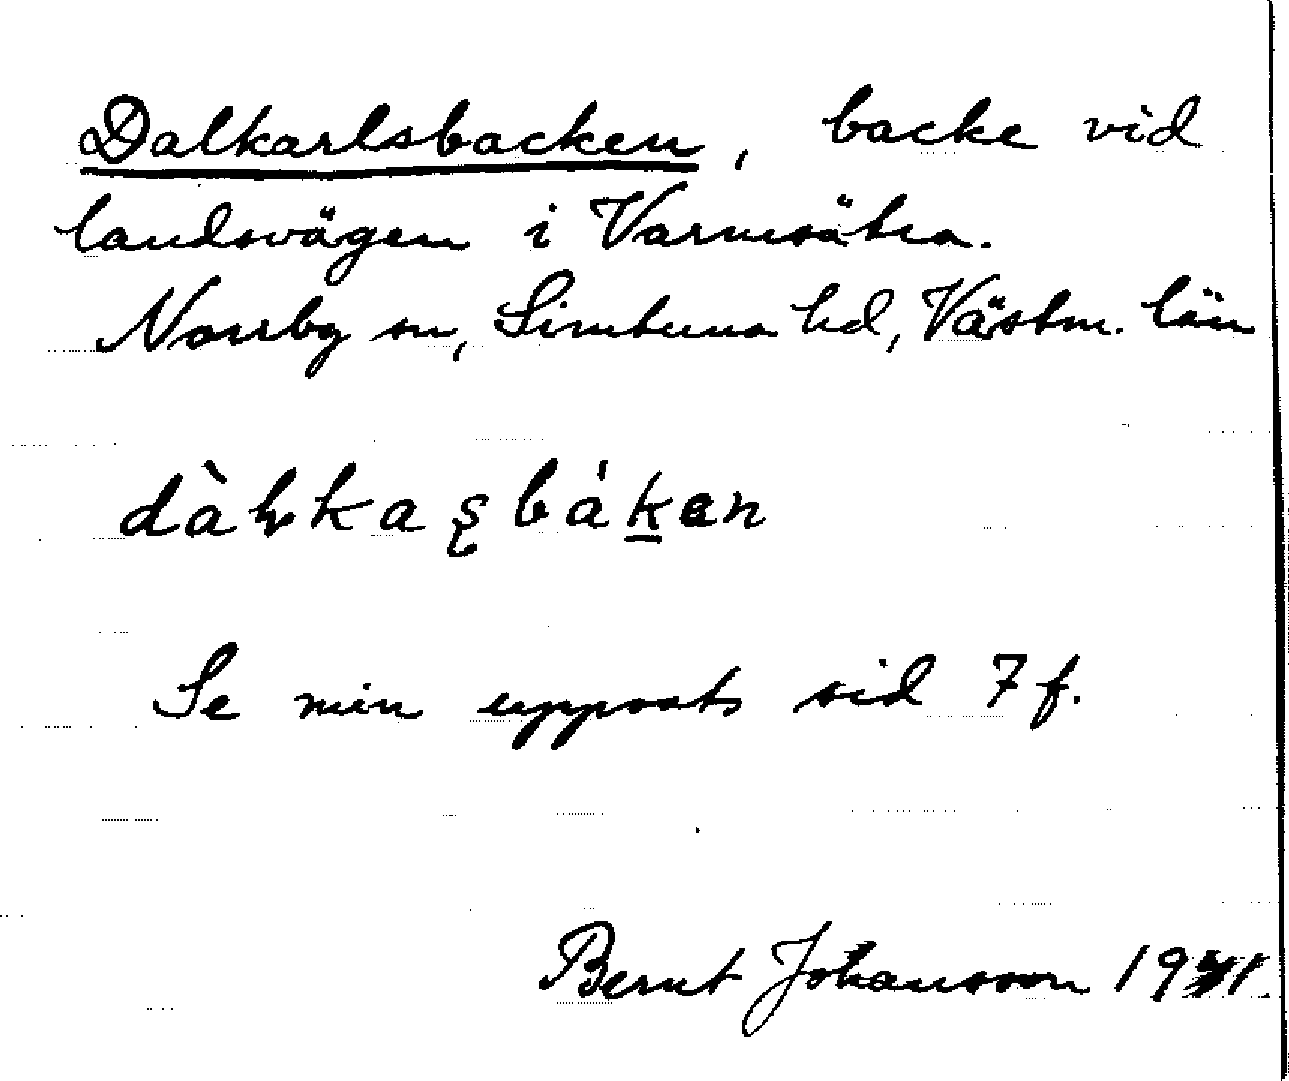 Dalkarlsbacken, backe vid
landsvägen i Varmsätra.
Norrby sn, Simtuna hd, Västm. län
Se min uppsats sid 7 f.
Bernt Johansson